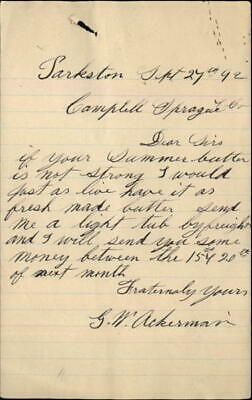 Parkston Sept 27th 92
Campbell Sprague Co
Dear Sirs
if your Summer butter
is not strong I would
just as live have it as
fresh made butter send
me a light tub by freight
and I will send you some
money between the 15 & 20th
of next month
Fraternaly Yours
G. W. Ackerman